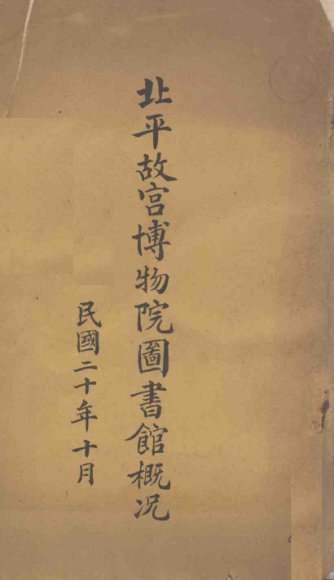 北平故宫博物院圖書館概况
民國二十年十月